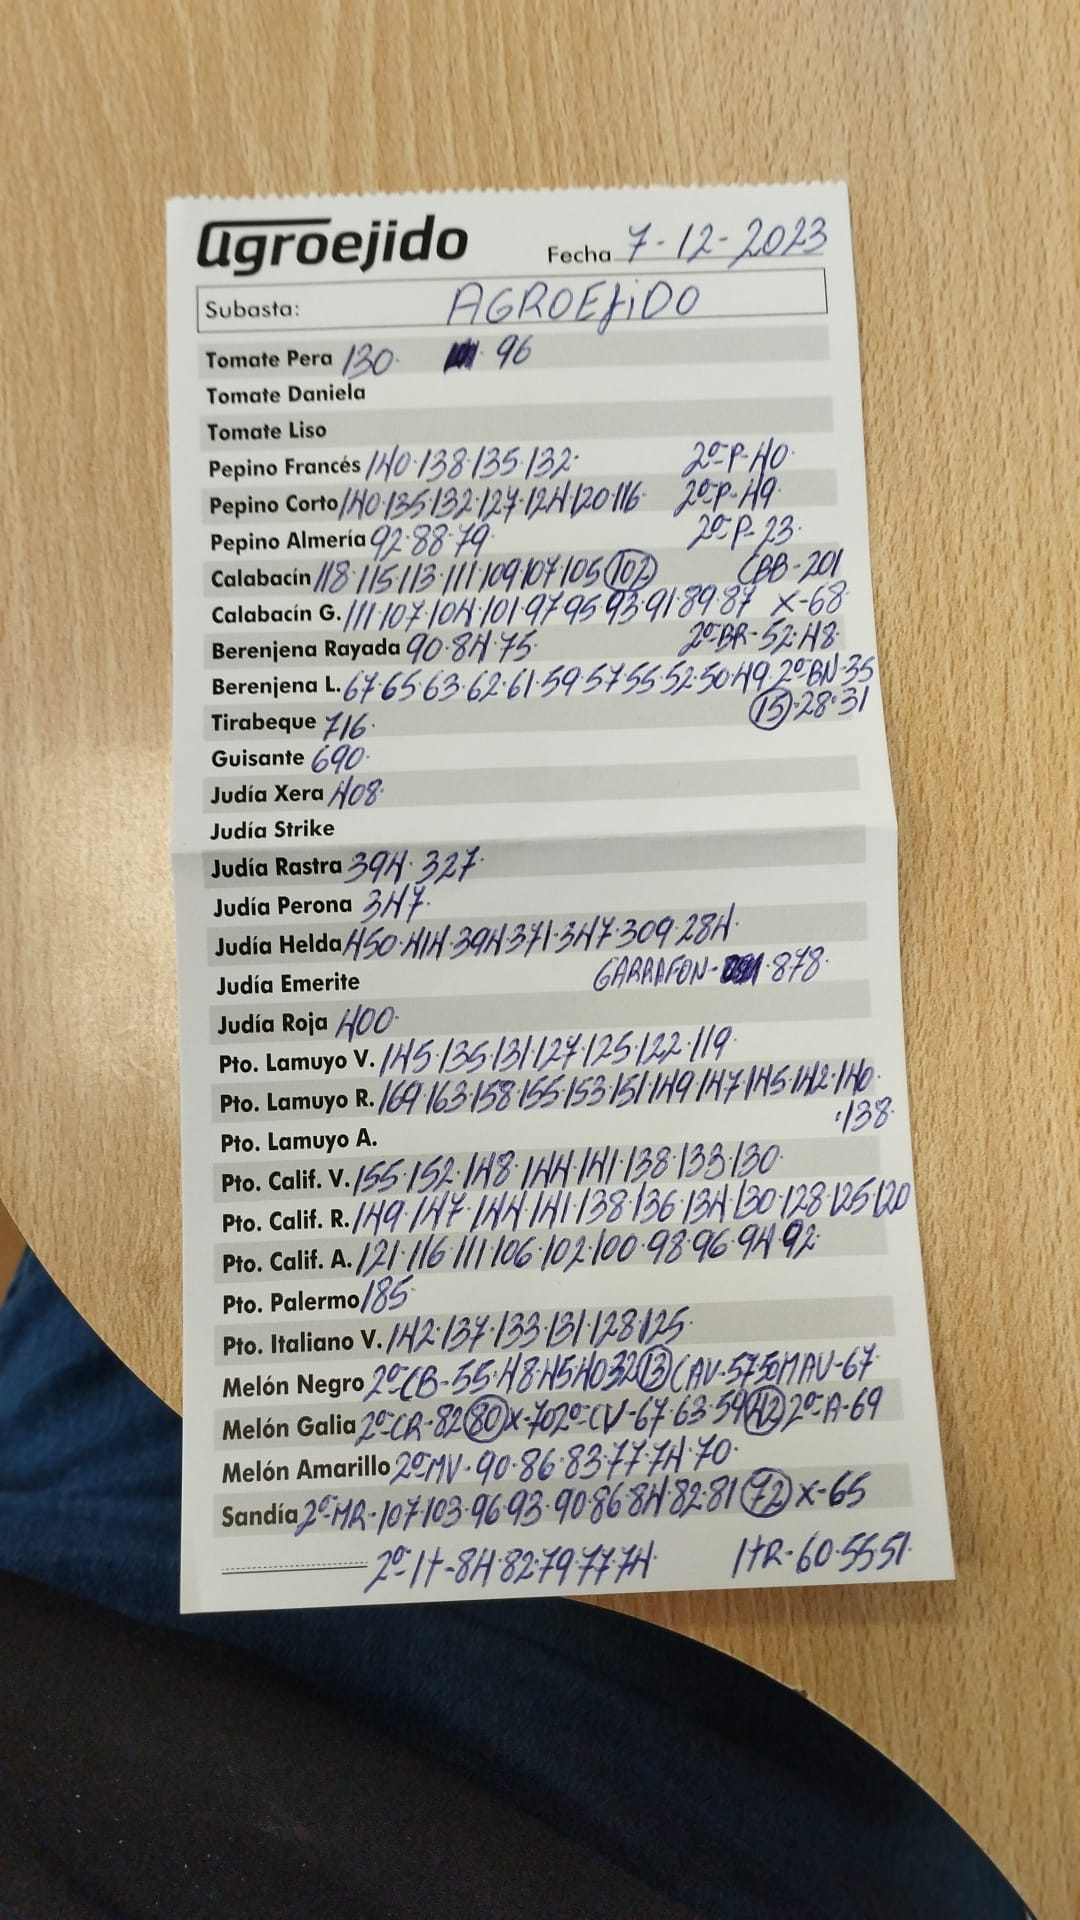 agroejido Fecha 7-12-2023
Subasta: AGROEjiDO
Tomate Pera 130. 96
Tomate Daniela
Tomate Liso
Pepino Francés 140.138.135.132. 2ª-P-40.
Pepino Corto 140.135.132.127.124.120.116 2ª-P-49
Pepino Almería 92.88.79. 2ª-P-23.
Calabacín 118.115.113.111.109.107.105 102 CBB-201
Calabacín G. 111.107.104.101.97.95.93.91.89.87 X-68
Berenjena Rayada 90.84.75. 2ª-BR-52.48.
Berenjena L. 67.65.63.62.61.59.57.55.52.50.49. 2ª-BN-35
Tirabeque 716. 15.28.31
Guisante 690.
Judía Xera 408.
Judía Strike
Judía Rastra 394. 327.
Judía Perona 347.
Judía Helda 450.414.394.371.347.309.284.
Judía Emerite GARRAFON- .878.
Judía Roja 400.
Pto. Lamuyo V. 145.135.131.127.125.122.119.
Pto. Lamuyo R. 169.163.158.155.153.151.149.147.145.142.140.
.138.
Pto. Lamuyo A.
Pto. Calif. V. 155.152.148.144.141.138.133.130.
Pto. Calif. R. 149.147.144.141.138.136.134.130.128.125.120
Pto. Calif. A. 121.116.111.106.102.100.98.96.94.92.
Pto. Palermo 185.
Pto. Italiano V. 142.137.133.131.128.125.
Melón Negro 2ª-CB-55.48.45.40.32 13 CAV-57.50 MAV-67.
Melón Galia 2ª-CR-82 80 X-70 2ª-CV-67.63.59 42 2ª-A-69
Melón Amarillo 2ª MV-90.86.83.77.74.70.
Sandía 2ª-MR-107.103.96.93.90.86.84.82.81 72 X-65
2ª-It-84.82.79.77.74. ItR-60.55.51.